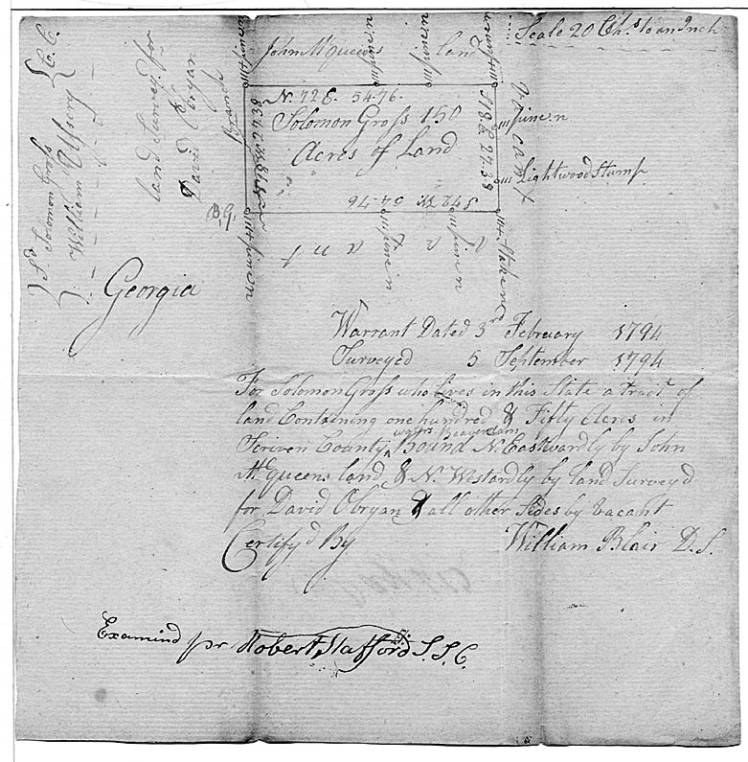 Scale 20 Chs to an Inch
John McQueens land
N. 72 E. 54-76.
Solomon Gross 150
Acres of Land
S 18 E 27.38
S 72 W 54-76
Branch
B,G,
pine n
pine n
Lightwood Stump
pine n
pine n
pine n
Stake n
Vacant
Vacant
land Survey for
David Obryan
Solomon Gross
William
C.C.
Georgia
Warrant Dated 3rd February 1794
Surveyed 5 September 1794
For Solomon Gross who lives in this State a tract of
land Containing one hundred & Fifty Acres in
waters Beaverdam
Scriven County ^ Bound N. Eastwardly by John
McQueens land & N. Westardly by land Survey'd
for David Obryan & all other Sides by vacant
Certify'd By William Blair D.S.
Examind pr Robert Stafford S.S.C.